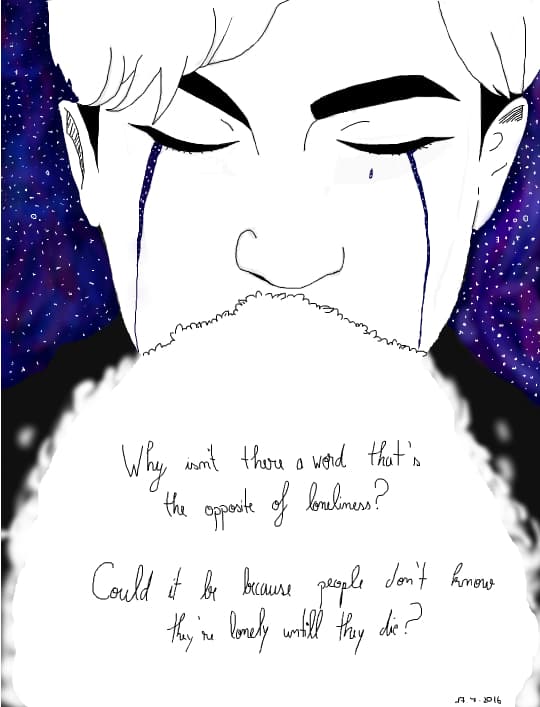 Why isn't there a word that's
the opposite of loneliness?
Could it be because people don't know
they're lonely untill they die?
17.4.2016